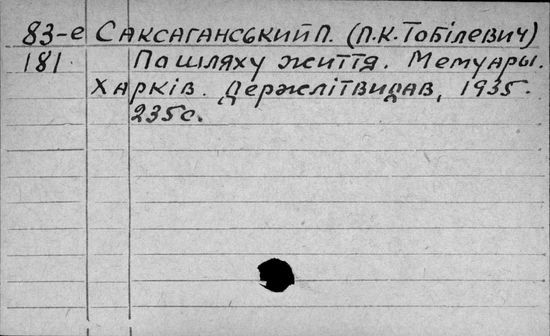 83-е САКСАГАНСЬКИЙ П. (П.К. ТОБІЛЕВИЧ)
181. По шляху життя. Мемуари.
Харків. Держлітвидав, 1935.
235 с.